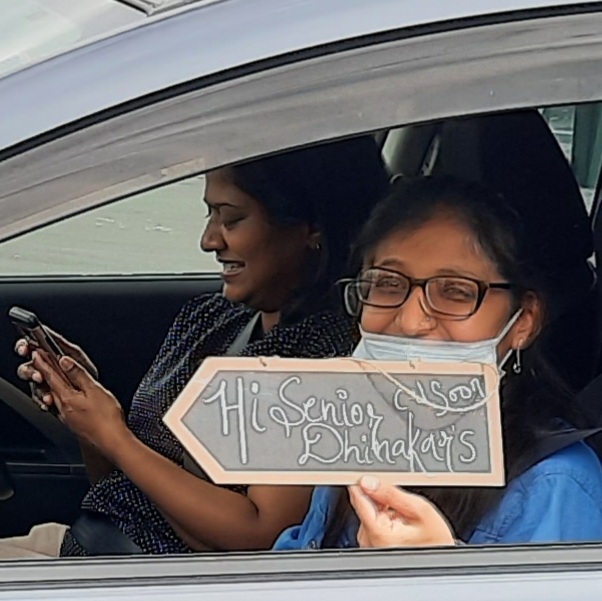 Hi Senior C U Soon
Dhinakar's